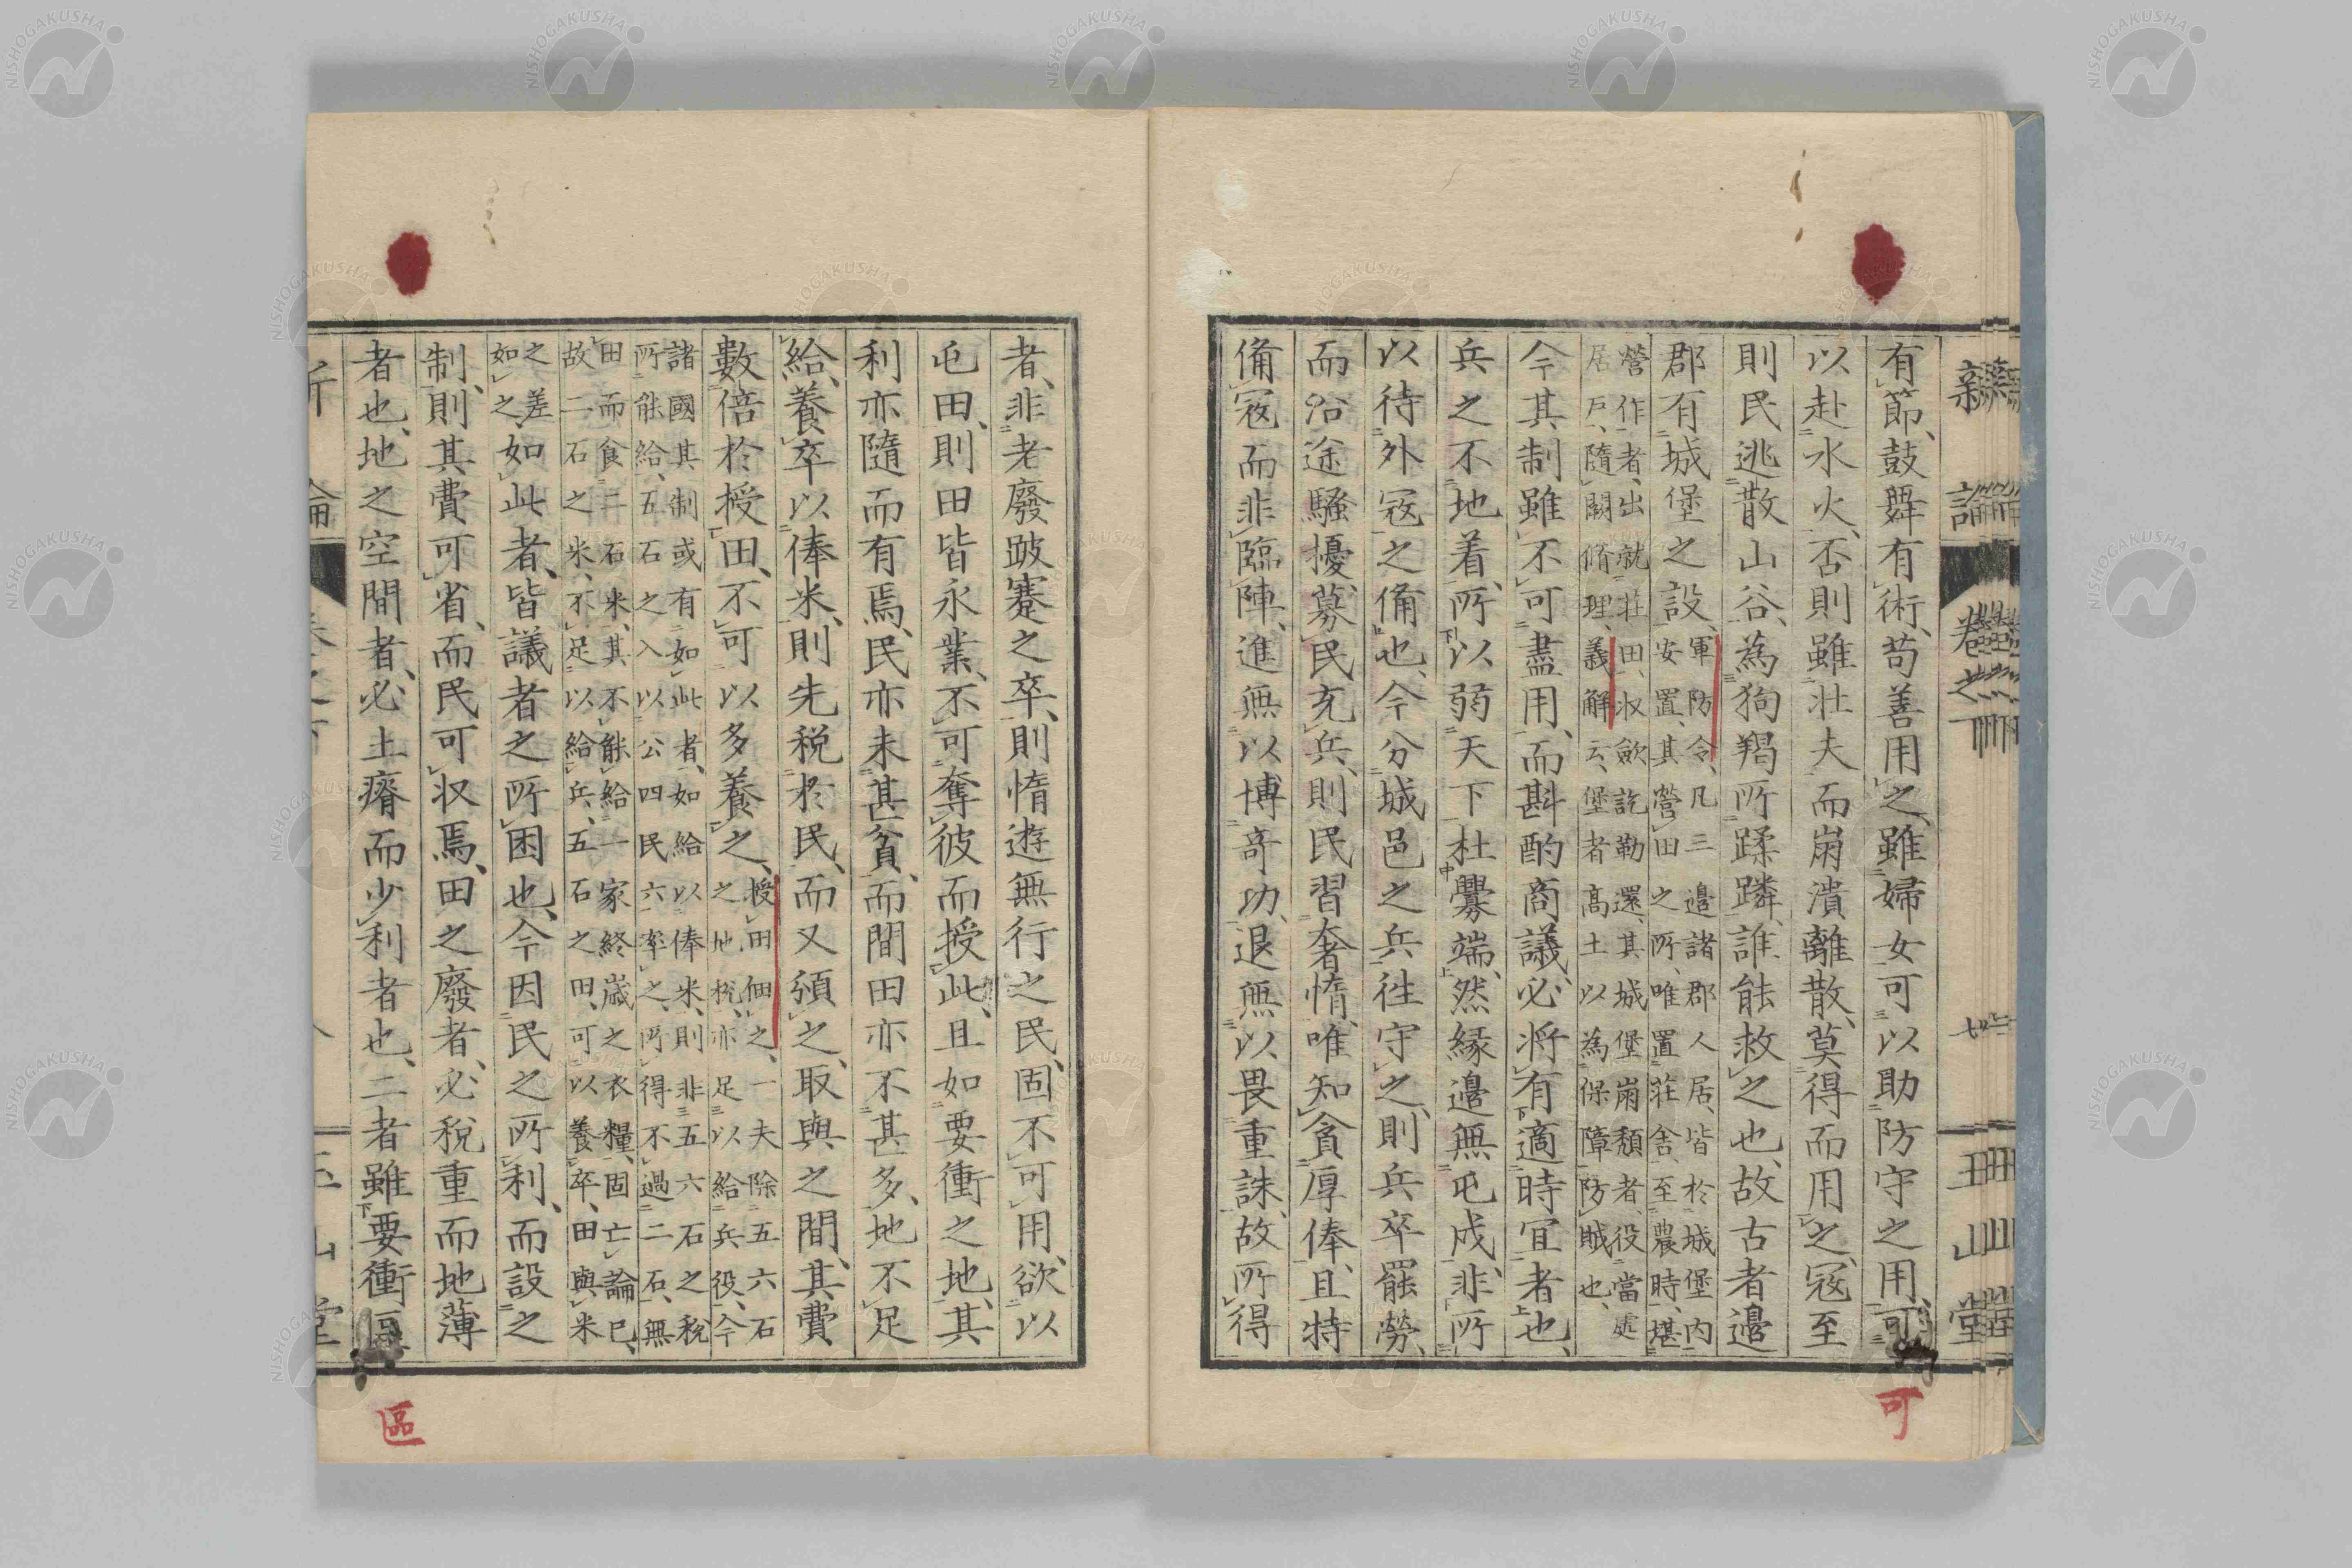 新論 卷之下 玉山堂
有節、鼓舞有術、苟善用之、雖婦女可以助防守之用、可
以赴水火、否則雖壯夫而崩潰離散、莫得而用之、寇至
則民逃散山谷、為狗羯所蹂躪、誰能救之也、故古者邊
郡有城堡之設、
軍防令、凡三邊諸郡人居、皆於城堡內
安置、其營田之所、唯置莊舍、至農時、堪
營作者、出就莊田、收歛訖勒還、其城堡崩頹者、役當處
居戶、隨閑脩理、義解云、堡者高土以為保障防賊也、
今其制雖不可盡用、而斟酌商議、必將有適時宜者也、
兵之不地着、所以弱天下杜釁端、然緣邊無屯戍、非所
以待外寇之備也、今分城邑之兵徃守之、則兵卒罷勞、
而沿途騷擾、募民充兵、則民習奢惰、唯知貪厚俸、且特
備寇而非臨陣、進無以博奇功、退無以畏重誅、故所得
者、非老廢跛蹇之卒、則惰遊無行之民、固不可用、欲以
屯田、則田皆永業、不可奪彼而授此、且如要衝之地、其
利亦隨而有焉、民亦未甚貧、而閒田亦不甚多、地不足
給養、卒以俸米、則先稅於民、而又頒之、取與之間、其費
數倍於授田、不可以多養之、
授田佃之、一夫除五六石
之地稅、亦足以給兵役、今
諸國其制或有如此者、如給以俸米、則非五六石之稅
所能給、五石之入以公四民六率之、所得不過二石、無
田而食二石米、其不能給一家終歲之衣糧、固亡論已、
故二石之米、不足以給兵、五石之田、可以養卒、田與米
之差
如之、
如此者、皆議者之所困也、今因民之所利、而設之
制、則其費可省、而民可収焉、田之廢者、必稅重而地薄
者也、地之空閒者、必土瘠而少利者也、二者雖要衝
區
可